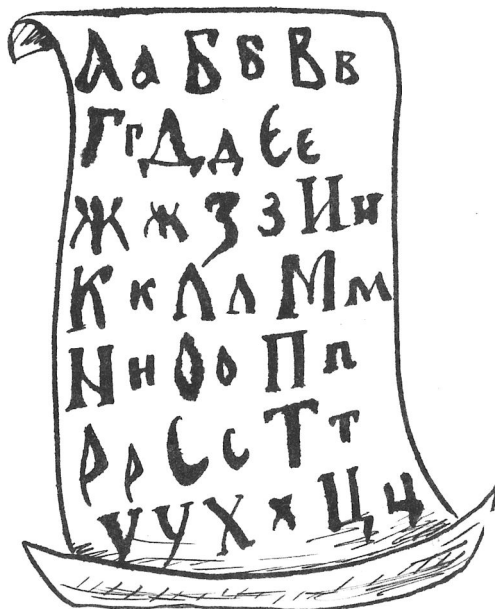 Аа Бб Вв
Гг Дд Єє
Жж Зз Ин
Кк Лл Мм
Nн Оо Пп
Рр Сс Тт
Уу Хх Цц